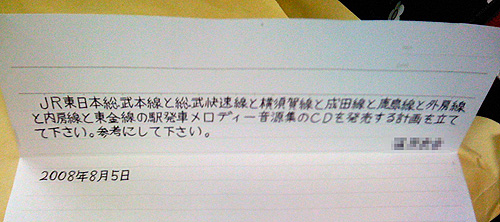 JR東日本総武本線と総武快速線と横須賀線と成田線と鹿島線と外房線
と内房線と東金線の駅発車メロディー音源集のCDを発売する計画を立て
て下さい。参考にして下さい。
2008年8月5日